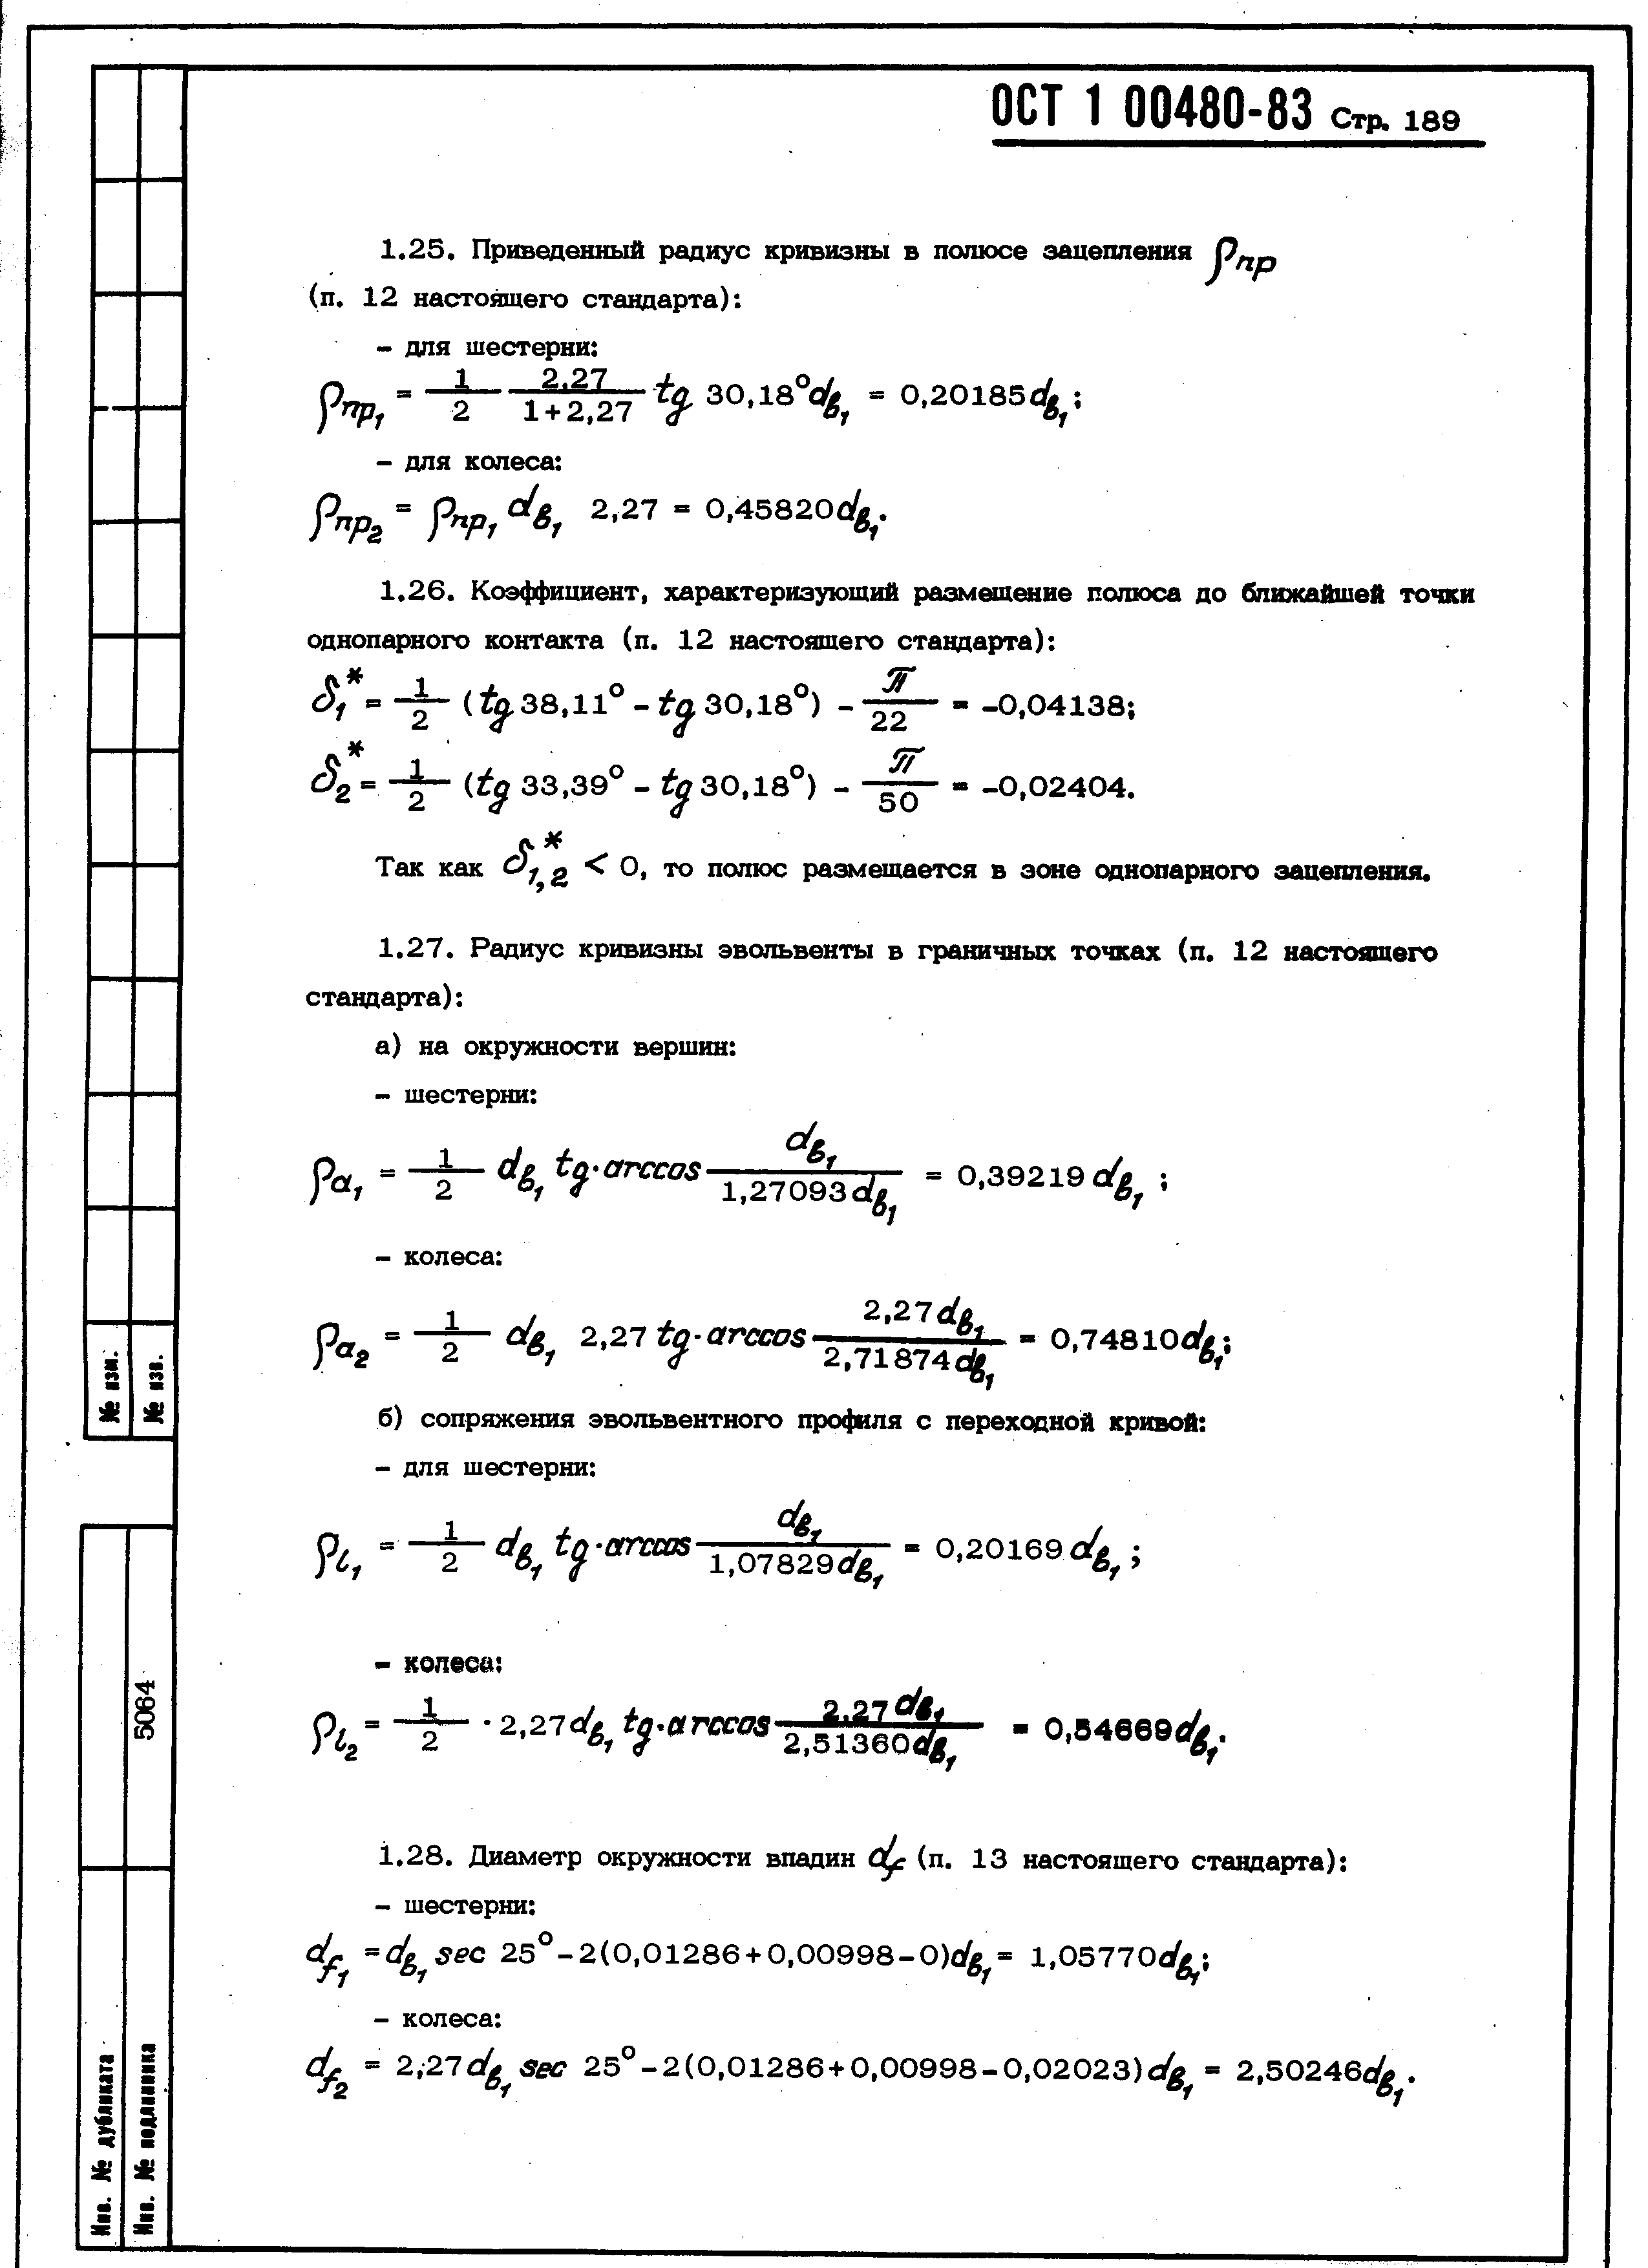 ОСТ 1 00480-83 Стр. 189
1.25. Приведенный радиус кривизны в полюсе зацепления ρпр
(п. 12 настоящего стандарта):
– для шестерни:
ρпр₁ = 1/2 2,27/(1+2,27) tg 30,18° dв₁ = 0,20185dв₁;
– для колеса:
ρпр₂ = ρпр₁ dв₁ 2,27 = 0,45820dв₁.
1.26. Коэффициент, характеризующий размещение полюса до ближайшей точки
однопарного контакта (п. 12 настоящего стандарта):
δ₁* = 1/2 (tg 38,11° – tg 30,18°) – π/22 = –0,04138;
δ₂* = 1/2 (tg 33,39° – tg 30,18°) – π/50 = –0,02404.
Так как δ₁,₂* < 0, то полюс размещается в зоне однопарного зацепления.
1.27. Радиус кривизны эвольвенты в граничных точках (п. 12 настоящего
стандарта):
а) на окружности вершин:
– шестерни:
ρa₁ = 1/2 dв₁ tg·arccos dв₁/1,27093dв₁ = 0,39219 dв₁ ;
– колеса:
ρa₂ = 1/2 dв₁ 2,27 tg·arccos 2,27dв₁/2,71874dв₁ = 0,74810dв₁;
б) сопряжения эвольвентного профиля с переходной кривой:
– для шестерни:
ρl₁ = 1/2 dв₁ tg·arccos dв₁/1,07829dв₁ = 0,20169 dв₁ ;
– колеса:
ρl₂ = 1/2 · 2,27dв₁ tg·arccos 2,27dв₁/2,51360dв₁ = 0,54669dв₁.
1.28. Диаметр окружности впадин df (п. 13 настоящего стандарта):
– шестерни:
df₁ = dв₁ sec 25° – 2(0,01286+0,00998–0)dв₁ = 1,05770dв₁;
– колеса:
df₂ = 2,27dв₁ sec 25° – 2(0,01286+0,00998–0,02023)dв₁ = 2,50246dв₁.
№ изм.
№ изв.
5064
Инв. № дубликата
Инв. № подлинника